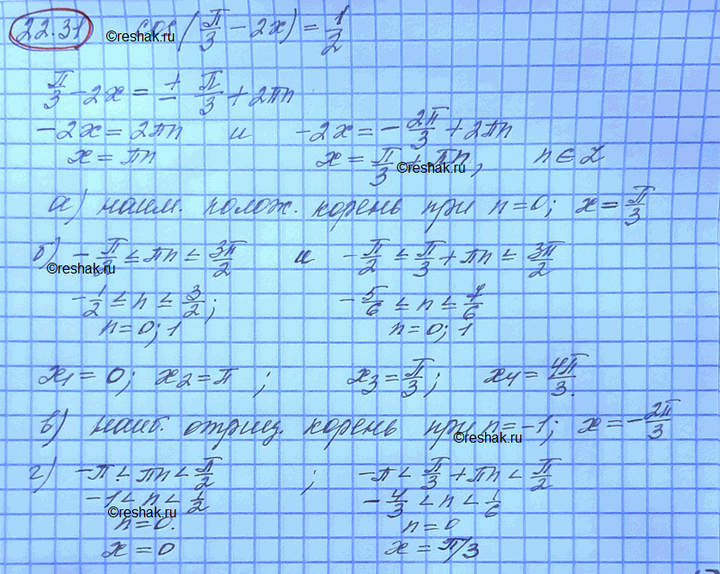 22.31 cos(π/3 - 2x) = 1/2
©reshak.ru
π/3 - 2x = ± π/3 + 2πn
-2x = 2πn и -2x = -2π/3 + 2πn
x = πn x = π/3 + πn, n ∈ Z
©reshak.ru
а) наим. полож. корень при n=0; x = π/3
б) -π/2 ≤ πn ≤ 3π/2 и -π/2 ≤ π/3 + πn ≤ 3π/2
©reshak.ru
-1/2 ≤ n ≤ 3/2; -5/6 ≤ n ≤ 7/6
n=0; 1 n=0; 1
x1 = 0; x2 = π; x3 = π/3; x4 = 4π/3.
в) наиб. отриц. корень при n=-1; x = -2π/3
©reshak.ru
г) -π < πn < π/2 ; -π < π/3 + πn < π/2
-1 < n < 1/2 -4/3 < n < 1/6
©reshak.ru
n=0. n=0
x=0 x=π/3